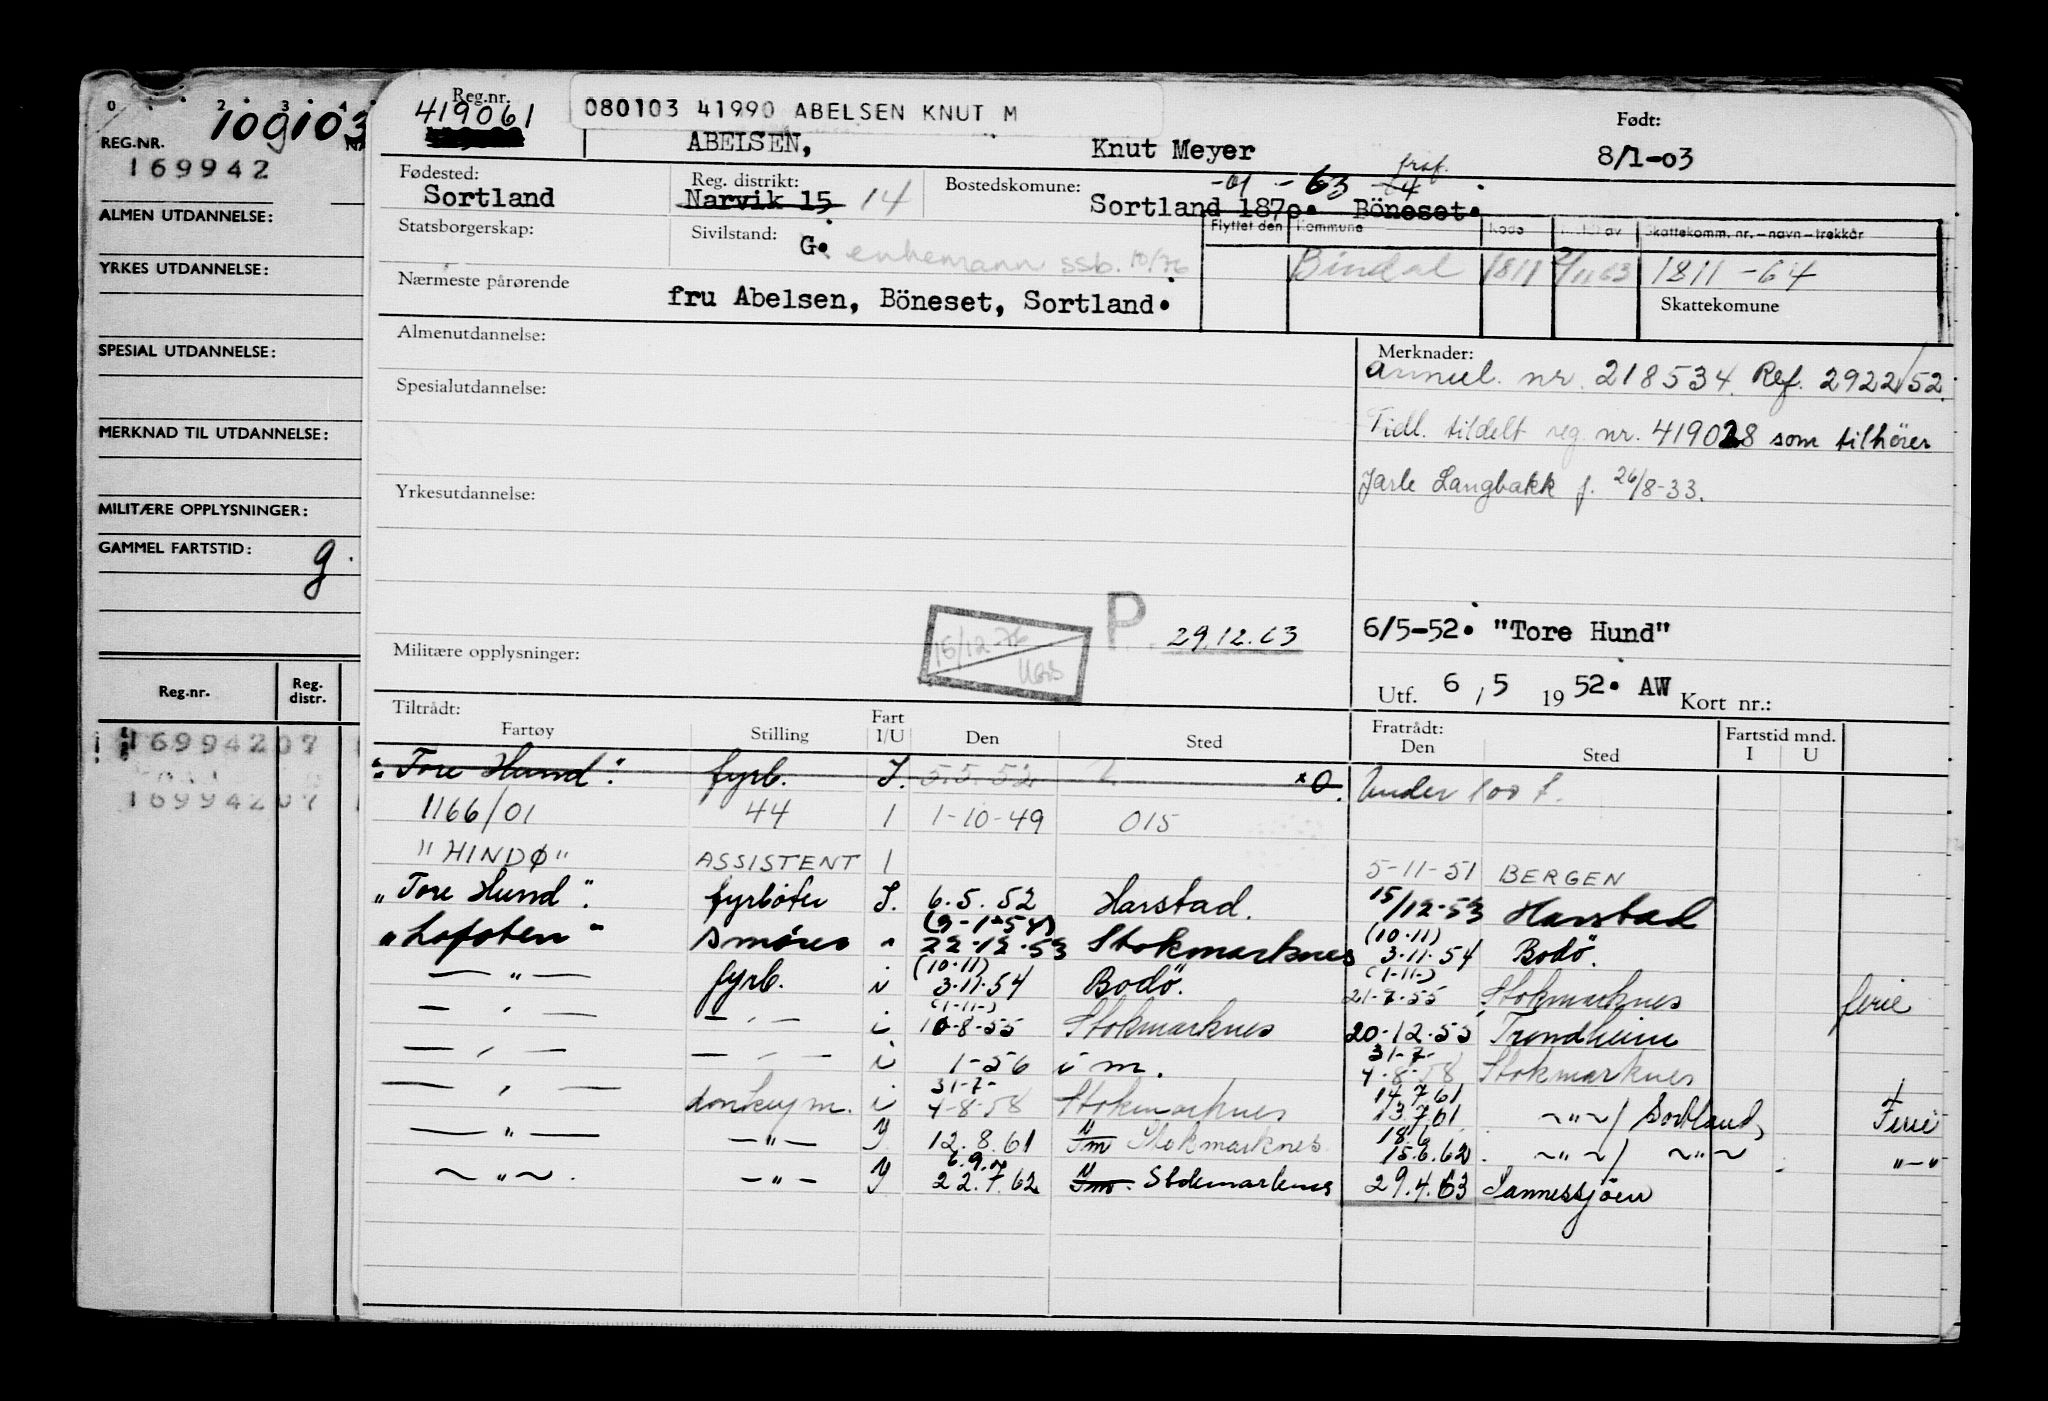 0 2 3 4
100103
REG.NR.
169942
ALMEN UTDANNELSE:
YRKES UTDANNELSE:
SPESIAL UTDANNELSE:
MERKNAD TIL UTDANNELSE:
MILITÆRE OPPLYSNINGER:
GAMMEL FARTSTID: g.
Reg.nr. Reg. distr.
169942 07
169942 07
Reg.nr. 080103 41990 ABELSEN KNUT M Født:
419061
ABELSEN, Knut Meyer 8/1-03
Fødested: Reg. distrikt: Bostedskomune: -01 - 63
Sortland Narvik 15 14 Sortland 187o. Böneset.
Statsborgerskap: Sivilstand: G. enkemann ssb. 10/76
Flyttet den Kommune Kode Skattekomm. nr. – navn – trekkår
Bindal 1811 2/11 63 1811 - 64
Nærmeste pårørende Skattekomune
fru Abelsen, Böneset, Sortland.
Almenutdannelse: Merknader:
annul. nr. 218534. Ref. 2922/52.
Spesialutdannelse:
Tidl. tildelt reg. nr. 419028 som tilhører
Yrkesutdannelse: Jarle Langbakk f. 26/8-33.
15/12-76 P. 29.12.63 6/5-52. "Tore Hund"
Militære opplysninger:
Utf. 6 , 5 19 52. AW Kort nr.:
Tiltrådt: Fratrådt: Fartstid mnd.
Fartøy Stilling Fart I/U Den Sted Den Sted I U
"Tore Hund". fyrb. I. 5.5.52 *O. Under 100 t.
1166/01 44 1 1-10-49 015
"HINDØ" ASSISTENT 1 5-11-51 BERGEN
"Tore Hund". fyrbøter I. 6.5.52 Harstad. 15/12-53 Harstad
(9-1-54) (10-11)
"Lofoten" Smører " 22-12-53 Stokmarknes 3-11-54 Bodø.
(10-11) (1-11-)
— " — fyrb. " 3-11-54 Bodø. 21-7-55 Stokmarknes ferie
(1-11-)
— " — — " — i 10-8-55 Stokmarknes 20-12-55 Trondheim
31-7-
— " — — " — i 1-56 i m. 4-8-58 Stokmarknes
31-7- 14.7.61
— " — donkeym. i 4-8-58 Stokmarknes 13.7.61 ~"~/ Sortland, Ferie
18.6
— " — — " — I 12.8.61 Im Stokmarknes 15.6.62. ~"~/ ~"~ "—"
6.9.
~ " ~. — " — I 22.7.62 Im. Stokmarknes 29.4.63 Sannessjöen